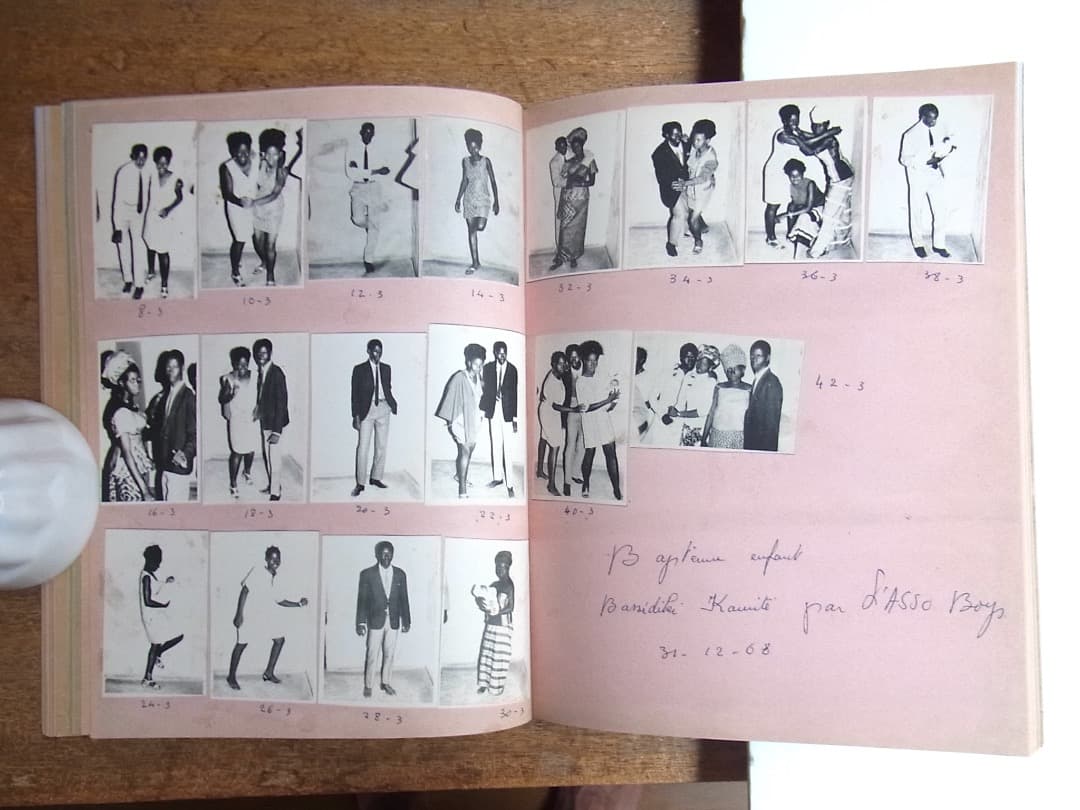 8-3
10-3
12-3
14-3
16-3
18-3
20-3
22-3
24-3
26-3
28-3
30-3
32-3
34-3
36-3
38-3
40-3
42-3
Baptême enfant
Bassidiki Kanité par L'ASSO Boys
31-12-68